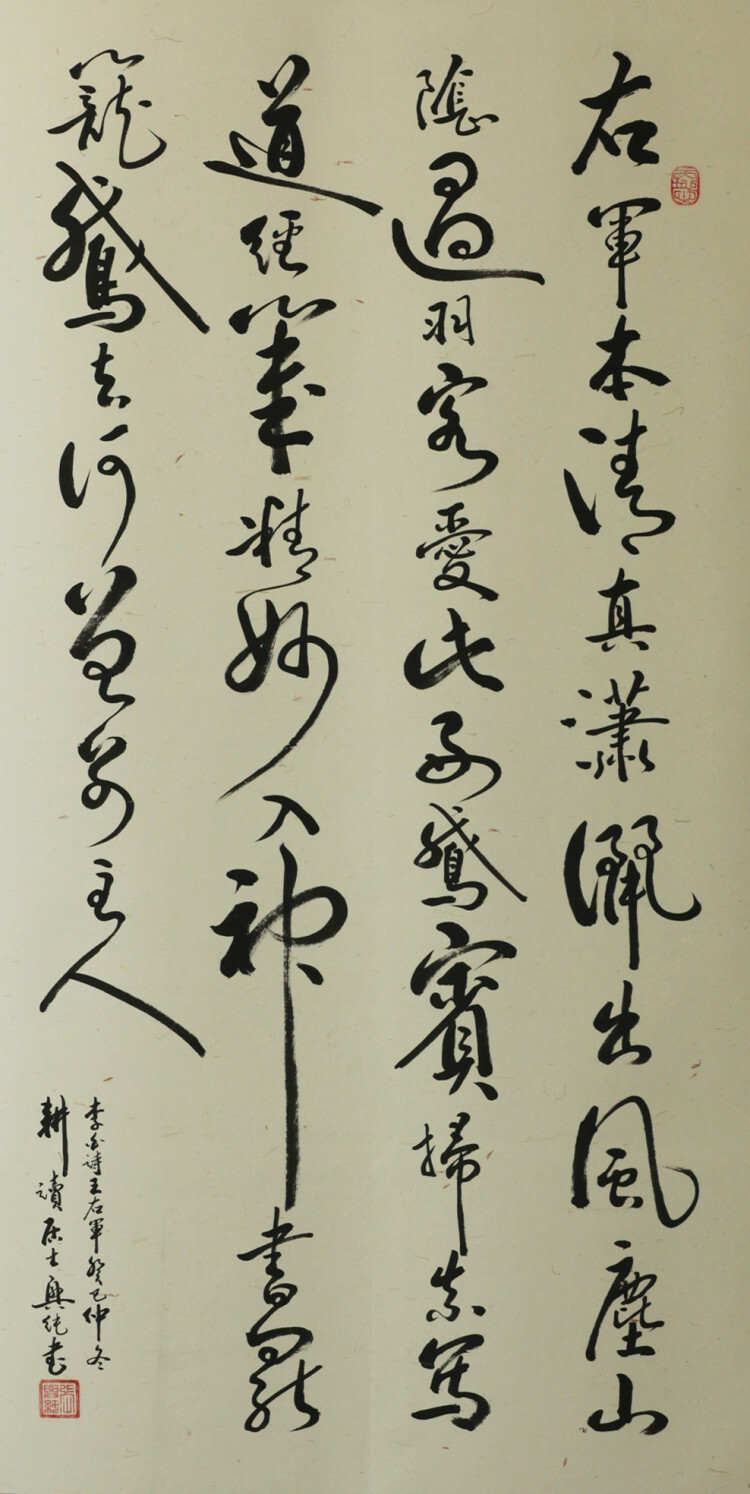 右軍本清真瀟灑出風塵山
陰過羽客愛此好鵝賓掃素寫
道經筆精妙入神書罷
籠鵝去何曾別主人
李白詩王右軍癸巳仲冬
耕讀居士興純書